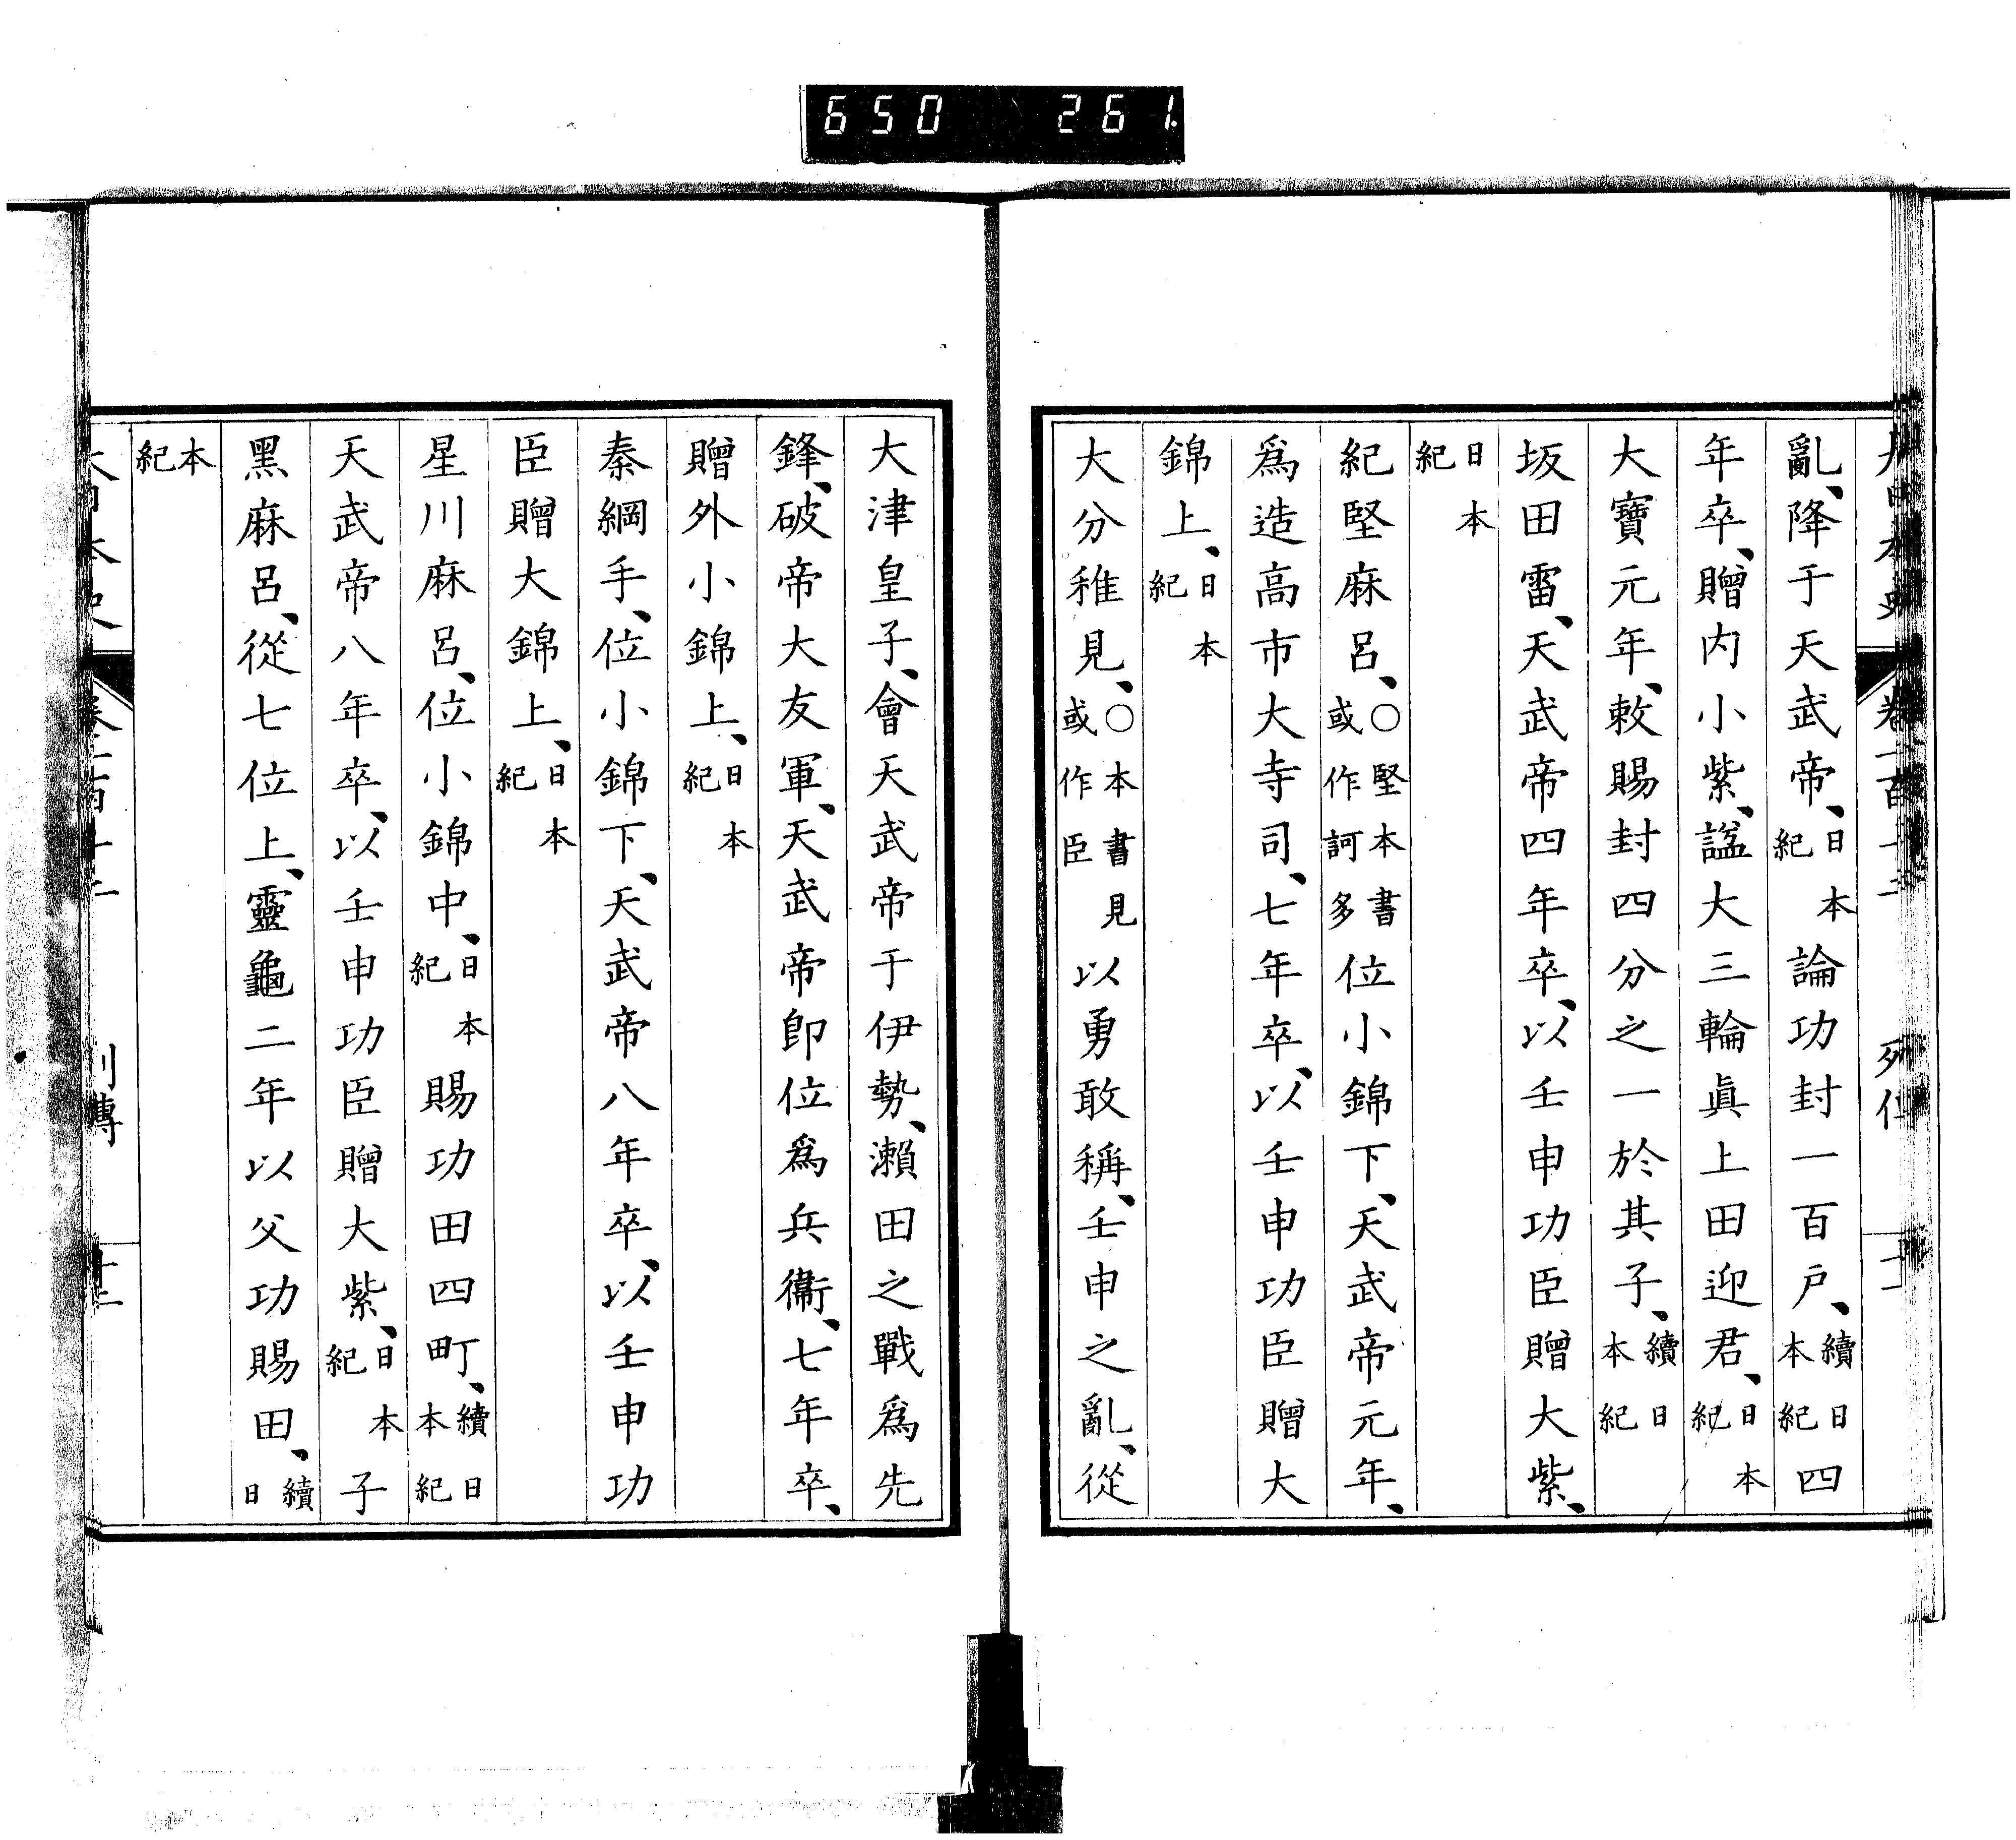 650 261
亂、降于天武帝、日本紀論功封一百戸、續日本紀四
年卒、贈内小紫、諡大三輪眞上田迎君、日本紀
大寶元年、敕賜封四分之一於其子、續日本紀
坂田雷、天武帝四年卒、以壬申功臣贈大紫、
日本紀
紀堅麻呂、○堅本書或作訶多位小錦下、天武帝元年、
爲造高市大寺司、七年卒、以壬申功臣贈大
錦上、日本紀
大分稚見、○本書見或作臣以勇敢稱、壬申之亂、從
大津皇子、會天武帝于伊勢、瀬田之戰爲先
鋒、破帝大友軍、天武帝卽位爲兵衞、七年卒、
贈外小錦上、日本紀
秦綱手、位小錦下、天武帝八年卒、以壬申功
臣贈大錦上、日本紀
星川麻呂、位小錦中、日本紀賜功田四町、續日本紀
天武帝八年卒、以壬申功臣贈大紫、日本紀子
黑麻呂、從七位上、靈龜二年以父功賜田、續日
本紀